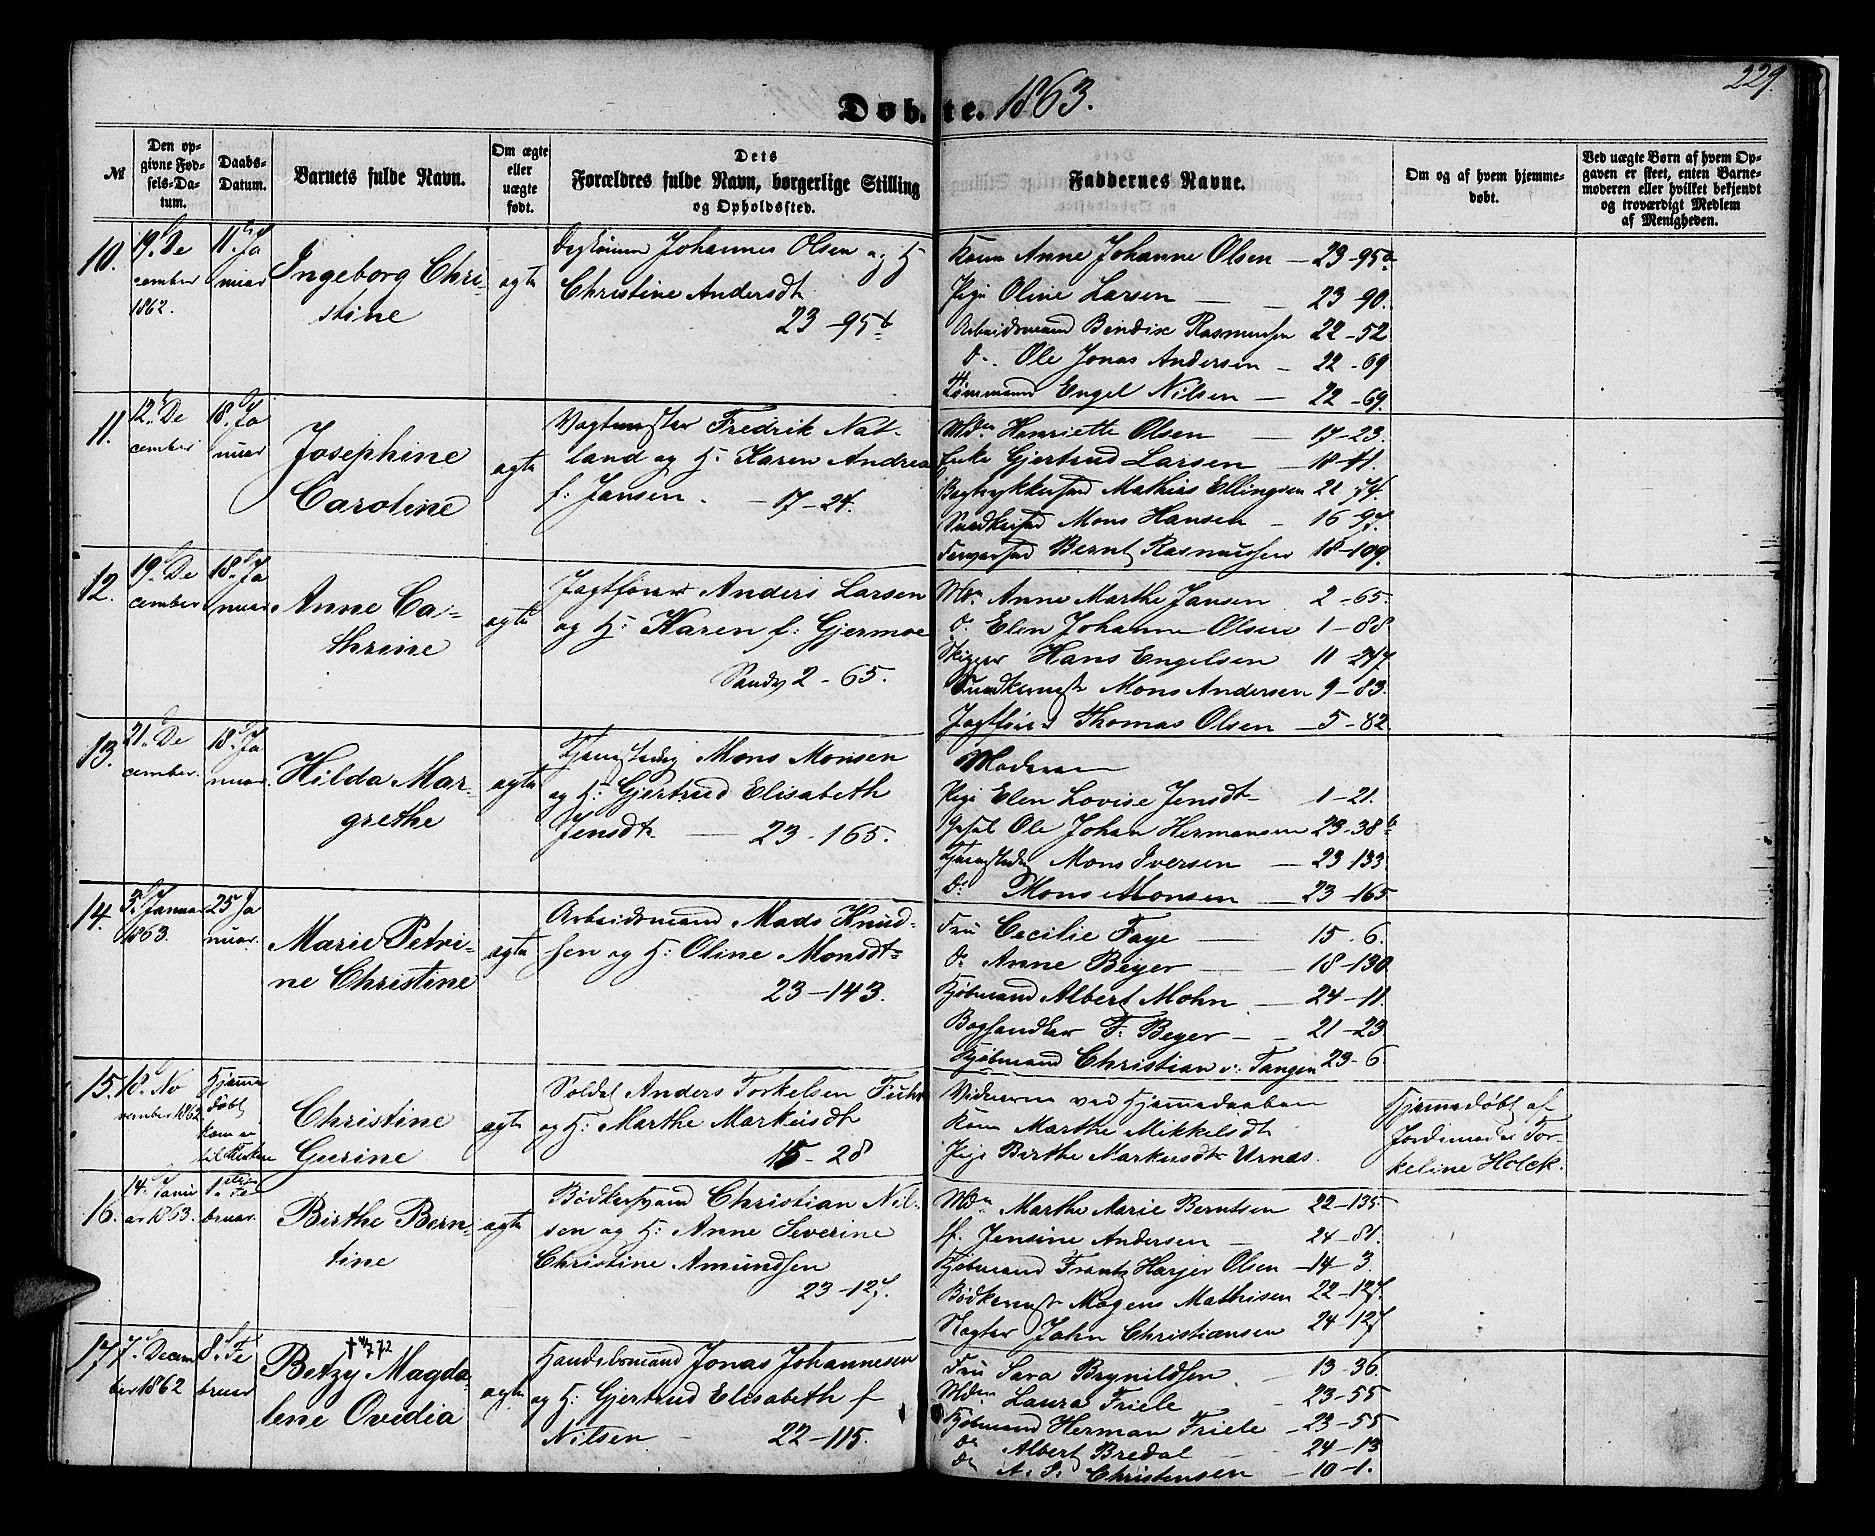 229.
Døbte. 1863.
№
Den opgivne Fød-
sels-Da-
tum.
Daabs-
Datum.
Barnets fulde Navn.
Om ægte
eller
uægte
født.
Dets
Forældres fulde Navn, borgerlige Stilling
og Opholdssted.
Faddernes Navne.
Om og af hvem hjemme-
døbt.
Ved uægte Børn af hvem Op-
gaven er skeet, enten Barne-
moderen eller hvilket bekjendt
og troværdigt Medlem
af Menigheden.
10.
19. De
cember
1862.
11. Ja
nuar
Ingeborg Chri-
stine
ægte
Johannes Olsen og H:
Christine Andersdt
23 - 95 b
Kone Anne Johanne Olsen - 23-95 b
Pige Oline Larsen - 23-90.
Arbeidsmand Bendix Rasmussen 22-52
do. Ole Jonas Andersen - 22-69
Tømmermand Engel Nilsen - 22-69.
11.
12. De
cember
18. Ja
nuar
Josephine
Caroline
ægte
Vægtmester Fredrik Nat-
land og H: Karen Andrea
f: Jansen - 17-24.
Mdm Henriette Olsen - 17-23.
Enke Gjertrud Larsen - 18-11.
Bogtrykkersvd Mathias Ellingsen 21-74.
Snedkersvd Mons Hansen - 16-97.
Farversvd Bernt Rasmussen 18-109.
12.
19. De
cember
18. Ja
nuar
Anne Ca-
thrine
ægte
Jagtfører Anders Larsen
og H: Karen f: Gjermoe
Sandv 2-65.
Mdm Anne Marthe Jansen 2-65.
do. Elen Johanne Olsen 1-88
Skipper Hans Engelsen 11-247
Snedkermstr Mons Andersen 9-83.
Jagtfører Thomas Olsen - 5-82
13.
21. De
cember.
18. Ja
nuar.
Hilda Mar-
grethe
ægte
Mons Monsen
og H: Gjertrud Elisabeth
Jensdt - 23-165.
Moderen
Pige Elen Lovise Jensdt 1-21.
Ole Johan Hermansen 23-38 b
Mons Iversen - 23-133
do. Mons Monsen - 23-165
14.
3. Januar
1863.
25 Ja
nuar.
Marie Petri-
ne Christine
ægte
Arbeidsmand Mads Knud-
sen og H: Oline Monsdt
23-143.
Fru Cecilie Faye - 15-6.
do. Anne Beyer - 18-130
Kjøbmand Albert Mohn - 24-11.
Boghandler F. Beyer - 21-23
Kjøbmand Christian v. Tangen 23-6
15.
18. No
vember 1862
Hjemme
døbt
kom
til Kirken
Christine
Gurine
ægte
Soldat Anders Torkelsen
og H: Marthe Markusdt
15-28
Vidnerne ved Hjemmedaaben
Kone Marthe Mikkelsdt
Pige Birthe Markusdt Urnes.
Hjemmedøbt af
Jordemoder Tor-
keline Holck.
16.
14. Janu
ar 1863.
1. Fe
bruar.
Birthe Bern-
tine
ægte
Bødkersvend Christian Nil-
sen og H: Anne Severine
Christine Amundsen
23-127.
Mdm Marthe Marie Berntsen 22-135
Jf. Jensine Andersen - 24-81.
Kjøbmand Frantz Harjer Olsen - 14-3.
Bødkermstr Mogens Mathisen 22-127.
Vægter John Christiansen 24-127
17
7. Decem
ber 1862
8. Fe
bruar
† 4/7 72
Betzy Magda-
lene Ovidia
ægte
Handelsmand Jonas Johannesen
og H: Gjertrud Elisabeth f
Nilsen - 22-115.
Fru Sara Brynildsen - 13-36.
Mdm Laura Friele - 23-55
Kjøbmand Herman Friele - 23-55
do Albert Bredal - 24-13
do A. S. Christensen - 10-1.